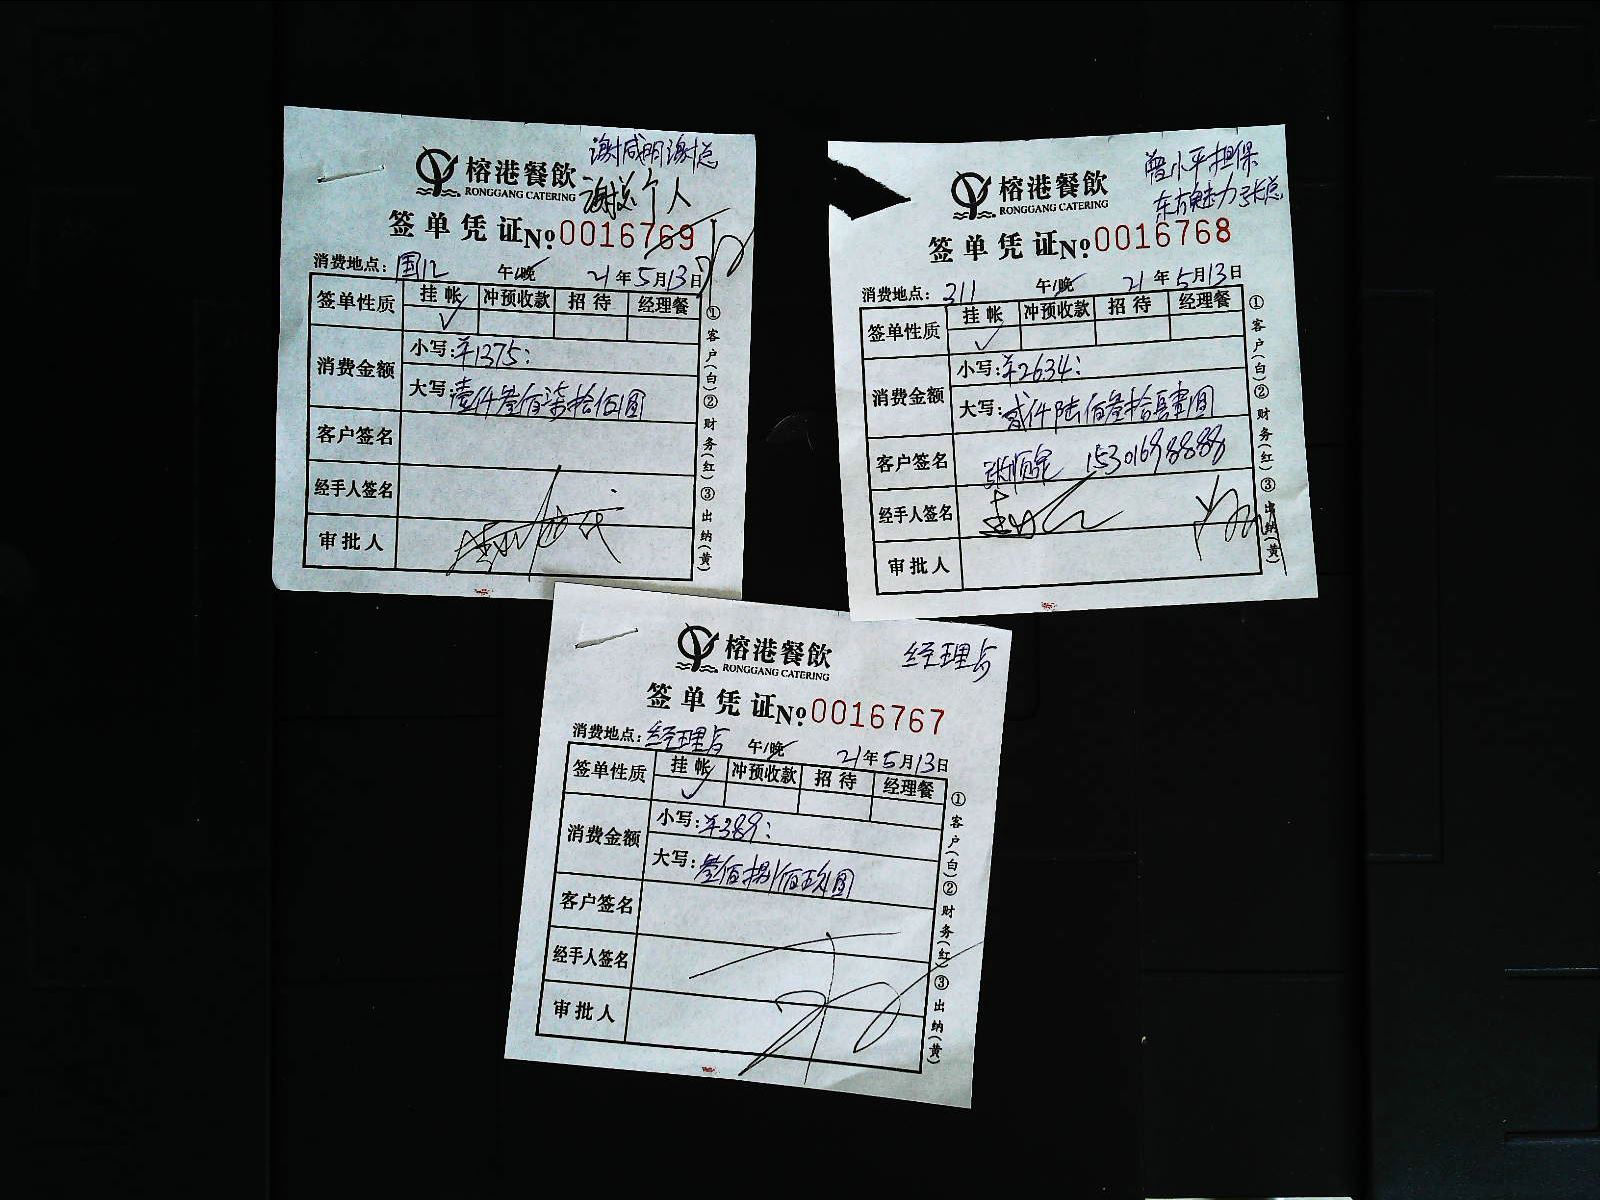 谢咸明谢总
榕港餐飲
RONGGANG CATERING
谢总个人
签单凭证 № 0016769
消费地点：国12 午/晚 21年5月13日
签单性质 挂帐 冲预收款 招待 经理餐
✓
消费金额 小写：¥1375：
大写：壹仟叁佰柒拾伍圆
客户签名
经手人签名
审批人
①客户(白)②财务(红)③出纳(黄)
曾小平担保
东方魅力张总
榕港餐飲
RONGGANG CATERING
签单凭证 № 0016768
消费地点：311 午/晚 21年5月13日
签单性质 挂帐 冲预收款 招待 经理餐
✓
消费金额 小写：¥2634：
大写：贰仟陆佰叁拾肆圆
客户签名 15301698888
经手人签名
审批人
①客户(白)②财务(红)③出纳(黄)
榕港餐飲
RONGGANG CATERING
经理房
签单凭证 № 0016767
消费地点：经理房 午/晚 21年5月13日
签单性质 挂帐 冲预收款 招待 经理餐
✓
消费金额 小写：¥389：
大写：叁佰捌佰玖圆
客户签名
经手人签名
审批人
①客户(白)②财务(红)③出纳(黄)